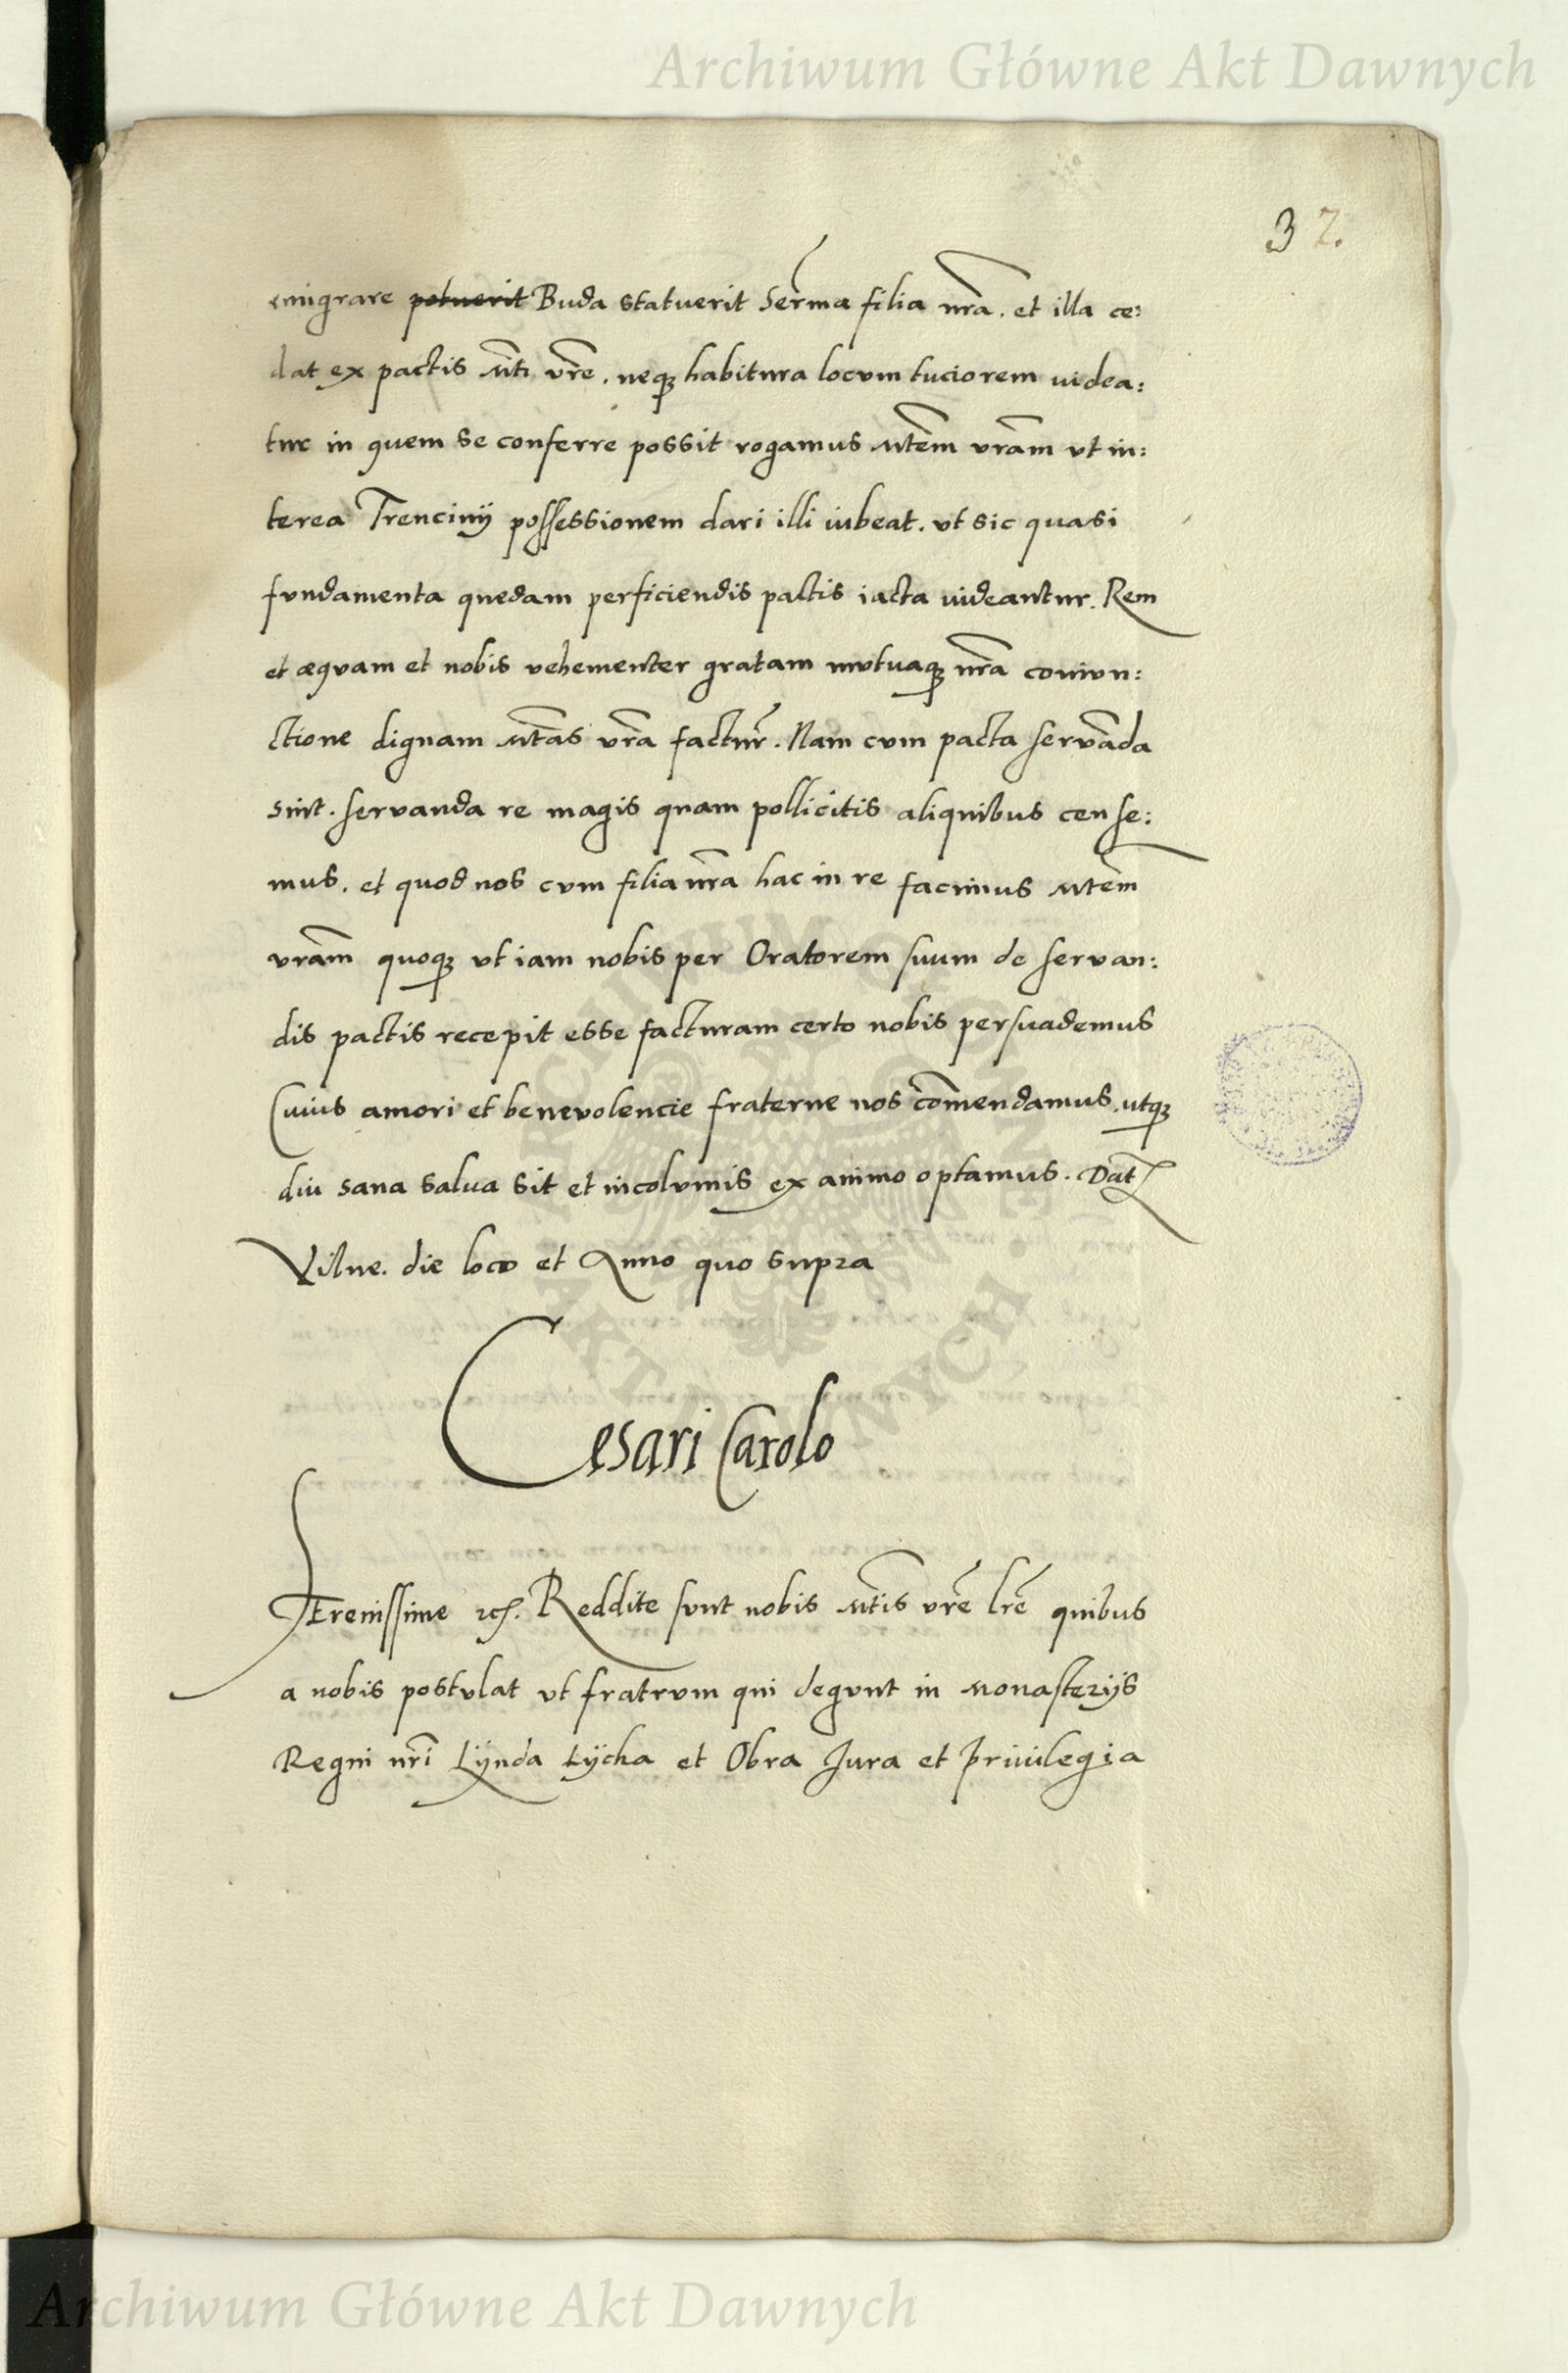 Archiwum Główne Akt Dawnych
37.
emigrare potuerit Buda statuerit Serma filia nra. et illa ce:
dat ex pactis Mti vre. neq habitura locum tuciorem videa:
tur in quem se conferre possit rogamus Mtem vram vt in:
terea Trencinij possessionem dari illi iubeat. vt sic quasi
fundamenta quedam perficiendis pactis iacta videantur. Rem
et æquam et nobis vehementer gratam mutuaq nra coniun:
ctione dignam Mtas vra factur. Nam cum pacta servada
sint. servanda re magis quam pollicitis aliquibus cense:
mus. et quod nos cum filia nra hac in re facimus Mtem
vram quoq vt iam nobis per Oratorem suum de servan:
dis pactis recepit esse facturam certo nobis persuademus
Cuius amori et benevolencie fraterne nos comendamus. utq
diu sana salva sit et incolumis ex animo optamus. Dat
Vilne. die loco et Anno quo supra
Cesari Carolo
Serenissime etc. Reddite sunt nobis Mtis vre lre quibus
a nobis postulat vt fratrum qui degunt in Monasterijs
Regni nri Lÿnda Lÿcha et Obra Jura et Privilegia
ARCHIWUM GŁÓWNE AKT DAWNYCH
Archiwum Główne Akt Dawnych